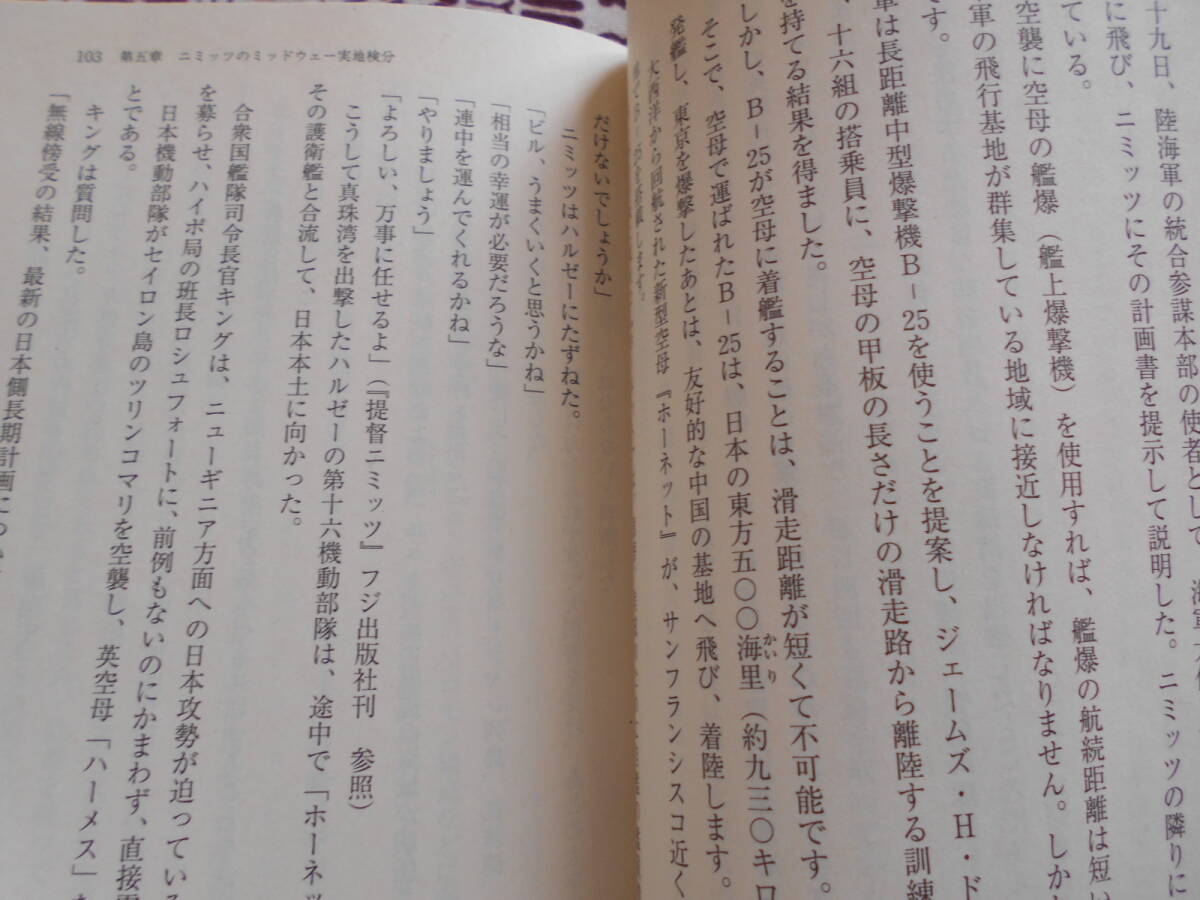 十九日、陸海軍の統合参謀本部の使者として、海軍
に飛び、ニミッツにその計画書を提示して説明した。ニミッツの隣りに
ている。
空襲に空母の艦爆(艦上爆撃機)を使用すれば、艦爆の航続距離は短い
軍の飛行基地が群集している地域に接近しなければなりません。しかも
です。
軍は長距離中型爆撃機B-25を使うことを提案し、ジェームズ・H・ド
、十六組の搭乗員に、空母の甲板の長さだけの滑走路から離陸する訓練
を持てる結果を得ました。
しかし、B-25が空母に着艦することは、滑走距離が短くて不可能です。
そこで、空母で運ばれたB-25は、日本の東方五〇〇海里(約九三〇キロ
かいり
発艦し、東京を爆撃したあとは、友好的な中国の基地へ飛び、着陸します。
大西洋から回航された新型空母『ホーネット』が、サンフランシスコ近く
103 第五章 ニミッツのミッドウェー実地検分
だけないでしょうか」
ニミッツはハルゼーにたずねた。
「ビル、うまくいくと思うかね」
「相当の幸運が必要だろうな」
「連中を運んでくれるかね」
「やりましょう」
「よろしい、万事に任せるよ」(『提督ニミッツ』フジ出版社刊 参照)
こうして真珠湾を出撃したハルゼーの第十六機動部隊は、途中で「ホーネッ
その護衛艦と合流して、日本本土に向かった。
合衆国艦隊司令長官キングは、ニューギニア方面への日本攻勢が迫っている
を募らせ、ハイポ局の班長ロシュフォートに、前例もないのにかまわず、直接電
日本機動部隊がセイロン島のツリンコマリを空襲し、英空母「ハーメス」を
とである。
キングは質問した。
「無線傍受の結果、最新の日本側長期計画につい